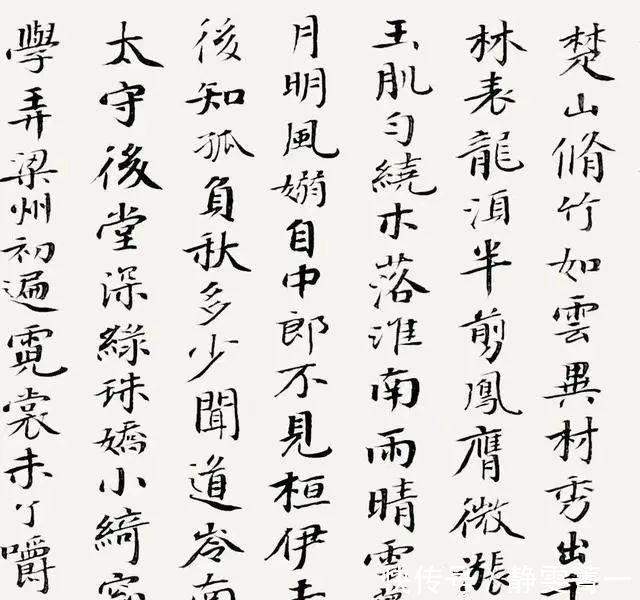 楚山脩竹如雲異材秀出千
林表龍湏半剪鳳膺微漲
玉肌匀繞木落淮南雨晴雲
月明風嫋自中郎不見桓伊去
後知孤負秋多少聞道岺南
太守後堂深綠珠嬌小綺窗
學弄梁州初遍霓裳未了嚼
快传号